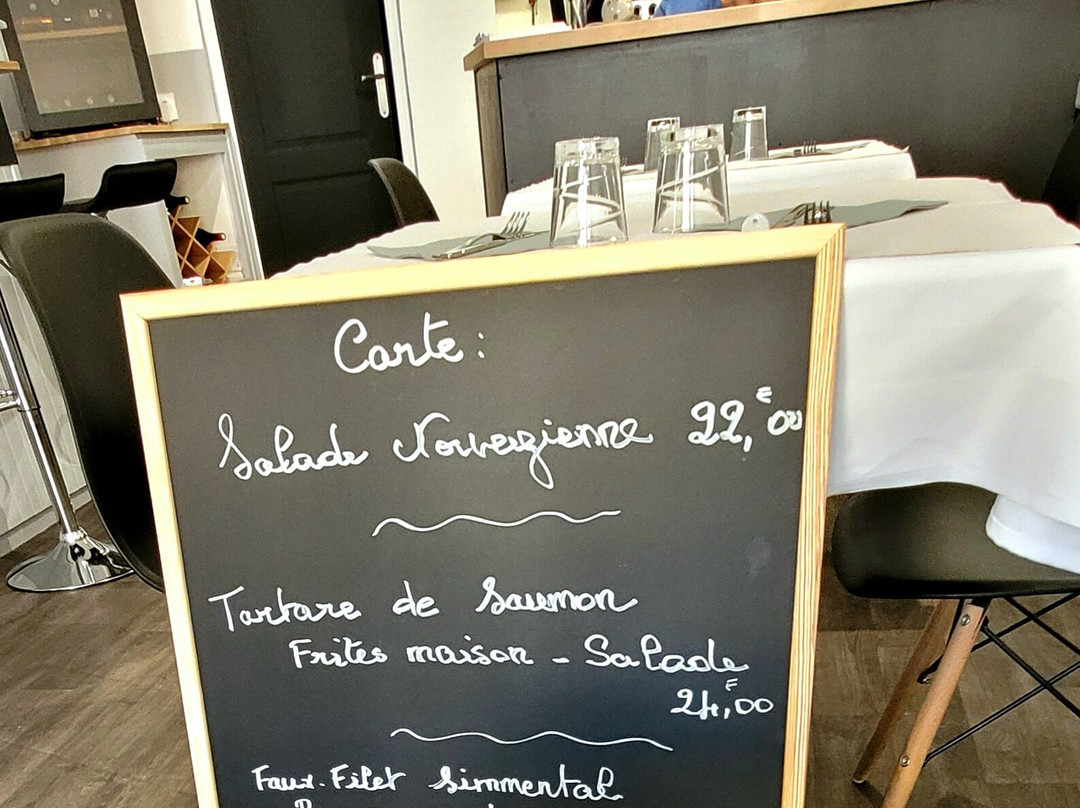 Carte :
Salade Norvegienne 22,€00
Tartare de Saumon
Frites maison - Salade
24,€00
Faux-Filet Simmental